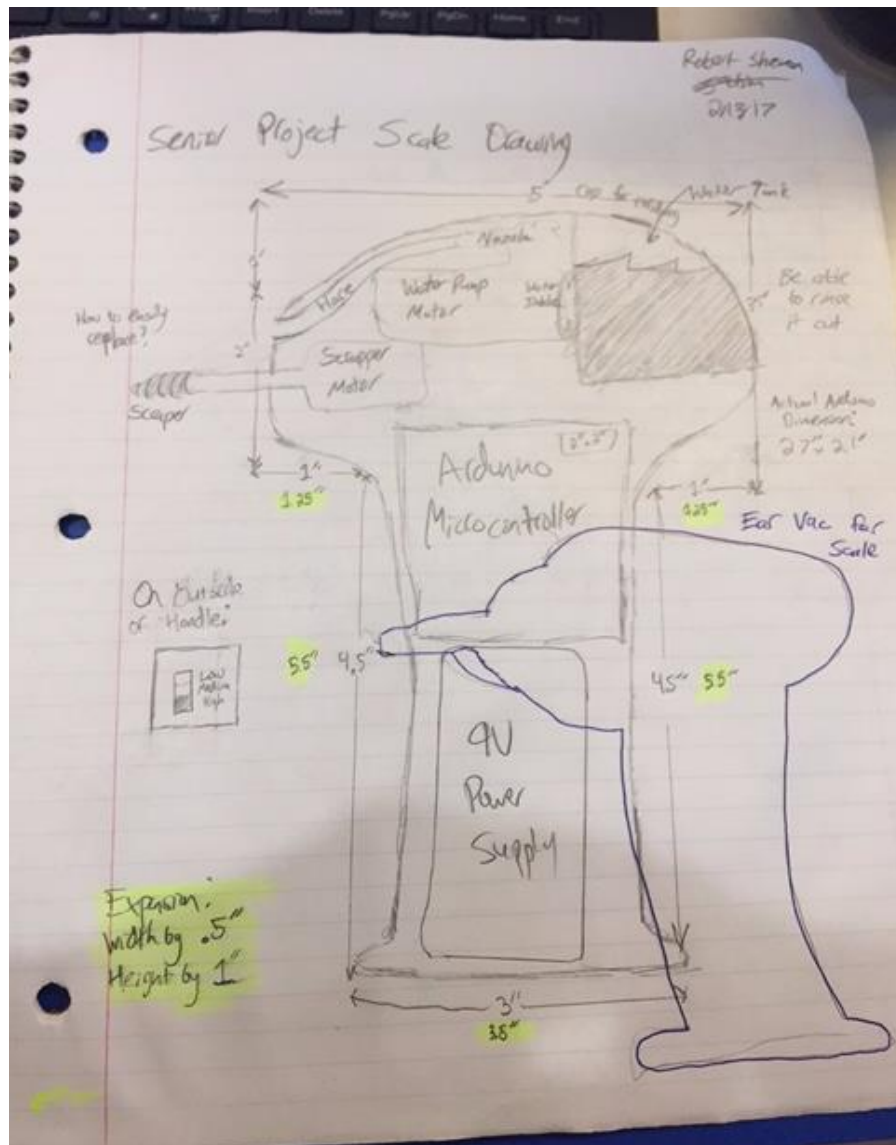 Robert
2/13/17
Senior Project Scale Drawing
5"
Cap for
Water Tank
Nozzle
Hose
Water Pump
Motor
Water
Be able
to rinse
it out
How to easily
replace?
2"
Scrapper
Motor
Scraper
Actual Arduino
Dimension:
2.7" x 2.1"
Arduino
Microcontroller
1"
1.25"
1"
1.25"
Ear Vac for
Scale
On Outside
of Handle:
Low
Medium
High
5.5" 4.5"
4.5" 5.5"
9V
Power
Supply
Expansion:
Width by .5"
Height by 1"
3"
3.5"